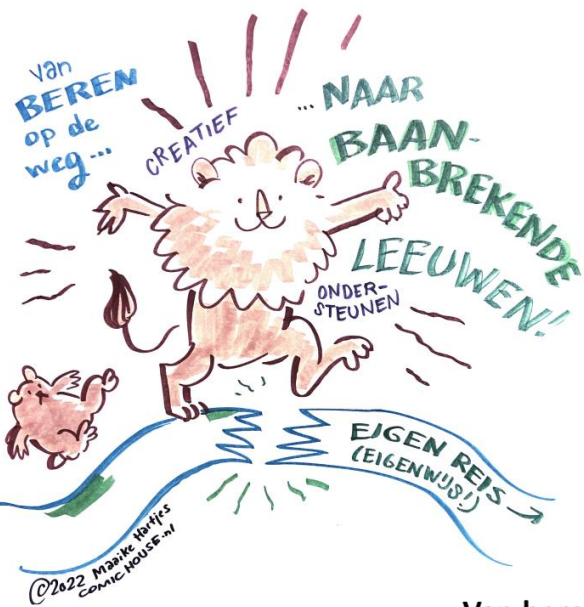 van
BEREN
op de
weg...
CREATIEF
...NAAR
BAAN-
BREKENDE
LEEUWEN!
ONDER-
STEUNEN
EIGEN REIS →
(EIGENWIJS!)
©2022 Maaike Hartjes
COMICHOUSE.nl